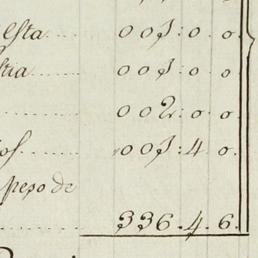 esta ..... 001: 0. 0.
tria ..... 001: 0. 0.
..... 002: 0. 0.
os ..... 001: 4. 0.
peso de
..... 336. 4. 6.